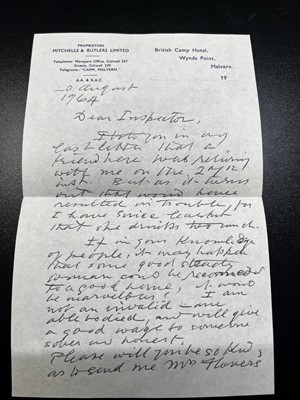 PROPRIETORS
MITCHELLS & BUTLERS LIMITED
Telephone: Managers Office, Colwall 237
Guests, Colwall 239
Telegrams: "CAMP, MALVERN."
A.A. & R.A.C.
British Camp Hotel,
Wynds Point,
Malvern.
19
20 August
1964
Dear Inspector,
I told you in my
last letter that a
friend here was retiring
with me on the 2nd
inst. But as it turns
out that would have
resulted in trouble, for
I have since learnt
that she drinks too much.
If in your knowledge
of people, it may happen
that some good steady
woman could be recommended
to a good home, it would
be marvellous. I am
not an invalid – am
able bodied, and will give
a good wage to someone
sober and honest.
Please will you be so kind,
as to send me Mrs Flowers